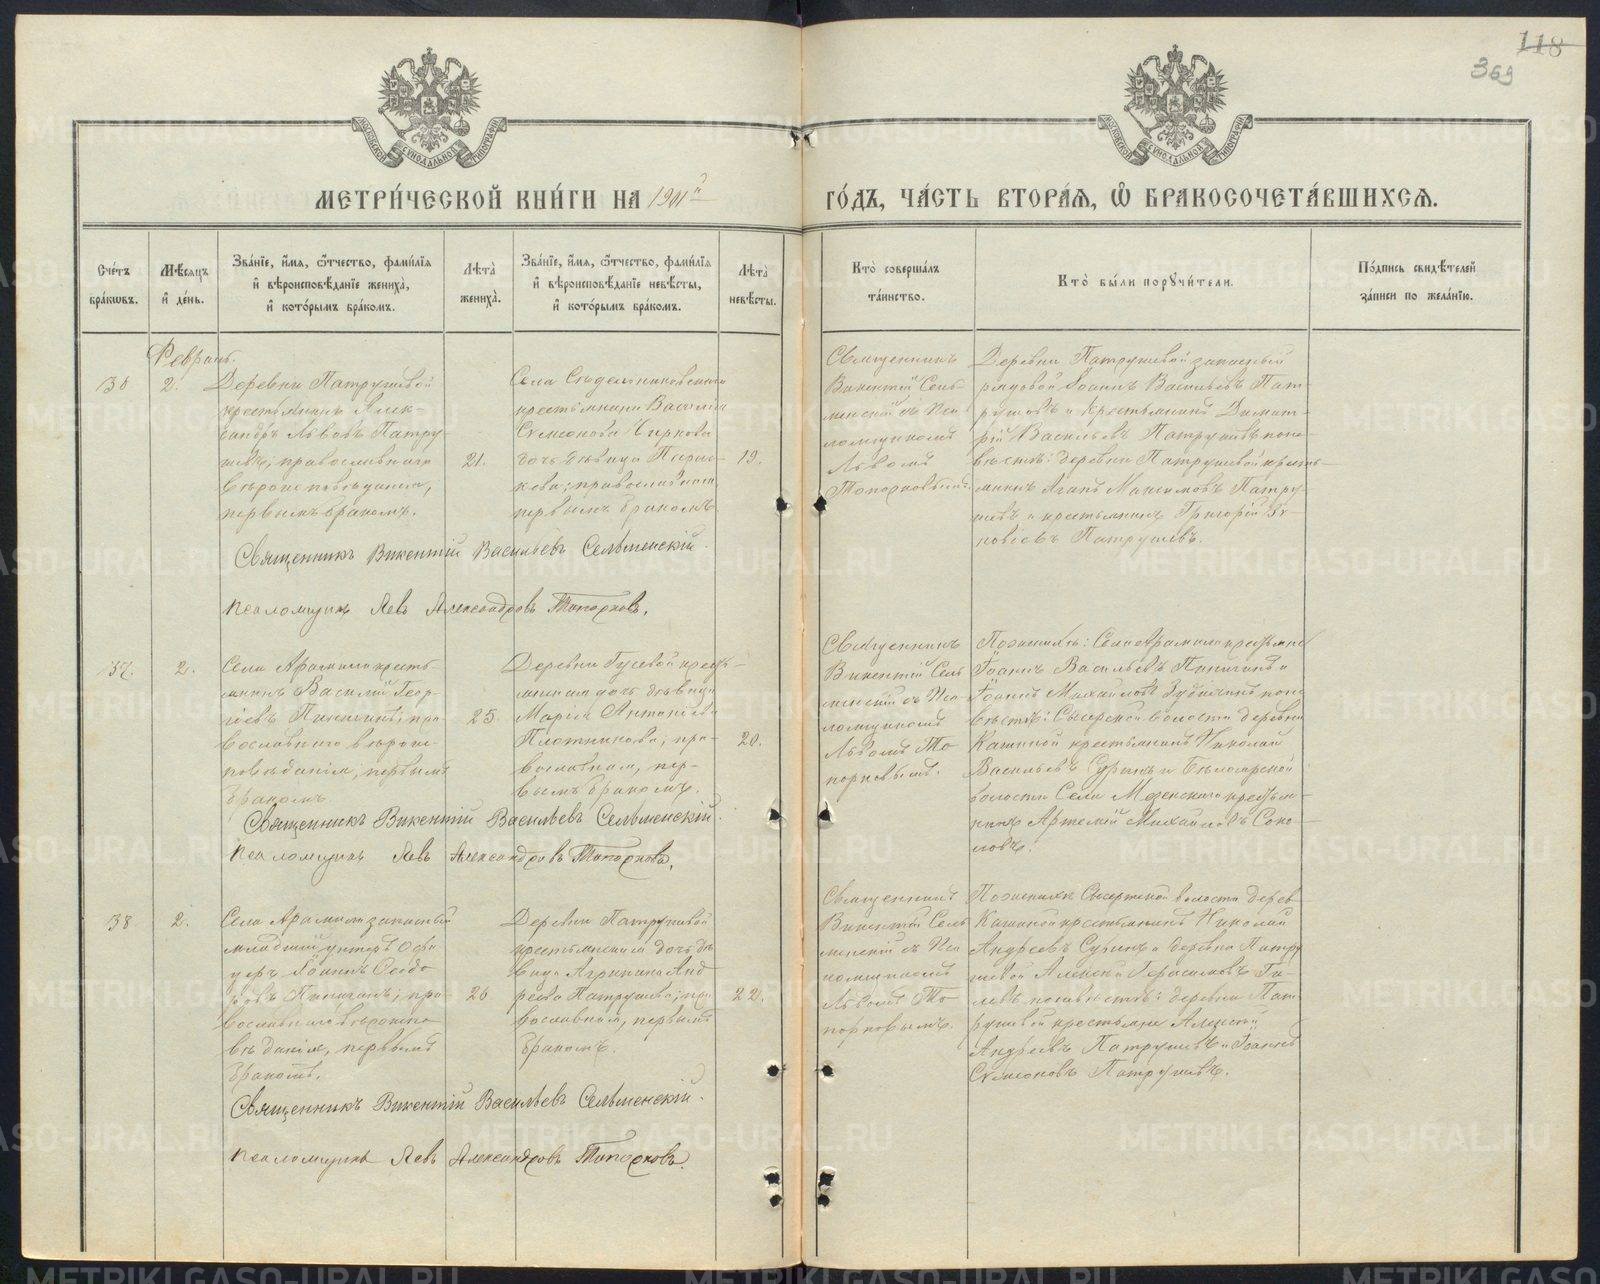 118
369
МЕТРИ́ЧЕСКОЙ КНИ́ГИ НА 1901й
ГО́ДЪ, ЧА́СТЬ ВТОРА́Я, Ѡ БРАКОСОЧЕТА́ВШИХСЯ.
Сче́тъ бра́кшвъ.
Мѣ́сяцъ и҆ де́нь.
Зва́нїе, и҆́мя, ѻ҆́тчество, фами́лїя и҆ вѣроисповѣ́данїе жениха̀, и҆ кото́рымъ бра́комъ.
Лѣ́та̀ жениха̀.
Зва́нїе, и҆́мя, ѻ҆́тчество, фами́лїя и҆ вѣроисповѣ́данїе невѣ́сты, и҆ кото́рымъ бра́комъ.
Лѣ́та̀ невѣ́сты.
Кто̀ соверша́лъ та́инство.
Кто̀ бы́ли порꙋчи́тели.
По́дпись свидѣ́телей за́писи по жела́нїю.
Февраль.
38
2.
Деревни Патрушевой
крестьянинъ Алек-
сандръ Львовъ Патру-
шевъ, православнаго
вѣроисповѣданія,
первымъ бракомъ.
21.
Села Сѣдельниковскаго
крестьянина Василія
Сѵмеонова Чиркова
дочь дѣвица Парас-
кева, православная,
первымъ бракомъ.
19.
Священникъ
Викентій Сель-
менскій съ пса-
ломщикомъ
Львомъ
Топорковымъ.
Деревни Патрушевой запасный
рядовой Іоаннъ Васильевъ Пат-
рушевъ и крестьянинъ Димит-
рій Васильевъ Патрушевъ; по не-
вѣстѣ: деревни Патрушевой кресть-
янинъ Агапъ Максимовъ Патру-
шевъ и крестьянинъ Григорій
Патрушевъ.
Священникъ Викентій Васильевъ Сельменскій.
Псаломщикъ Левъ Александровъ Топорковъ.
37.
2.
Села Арамили кресть-
янинъ Василій Геор-
гіевъ Пинигинъ, пра-
вославнаго вѣроис-
повѣданія, первымъ
бракомъ
25.
Деревни Гусевой кресть-
янская дочь дѣвица
Марія Антоніева
Плотникова, пра-
вославная, пер-
вымъ бракомъ.
20.
Священникъ
Викентій Сель
менскій съ пса
ломщикомъ
Львомъ То
порковымъ.
По женихѣ: Села Арамили крестьяне
Іоаннъ Васильевъ Пинигинъ и
Іоаннъ Михайловъ Зубаинъ по не
вѣстѣ: Сысертской волости деревни
Кашиной крестьянинъ Николай
Васильевъ Суринъ и Бѣлоярской
волости Села Мезенскаго крестья-
нинъ Артемій Михайловъ Соко-
ловъ.
Священникъ Викентій Васильевъ Сельменскій.
Псаломщикъ Левъ Александровъ Топорковъ.
38
2.
Села Арамили запасный
младшій унтеръ офи
церъ Іоаннъ Ѳеодо
ровъ Пинигинъ, пра
вославнаго вѣроиспо
вѣданія, первымъ
бракомъ.
26
Деревни Патрушевой
крестьянская дочь дѣ
вица Агрипина Анд
реева Патрушева, пра
вославная, первымъ
бракомъ.
22.
Священникъ
Викентій Сель
менскій съ пса
ломщикомъ
Львомъ То
порковымъ.
По женихѣ Сысертской волости дерев.
Кашиной крестьянинъ Николай
Андреевъ Суринъ и деревни Патру
шевой Алексѣй Герасимовъ Ги-
левъ по невѣстѣ: деревни Пат-
рушевой крестьяне Алексѣй
Андреевъ Патрушевъ и Іоаннъ
Сѵмеоновъ Патрушевъ.
Священникъ Викентій Васильевъ Сельменскій.
Псаломщикъ Левъ Александровъ Топорковъ.